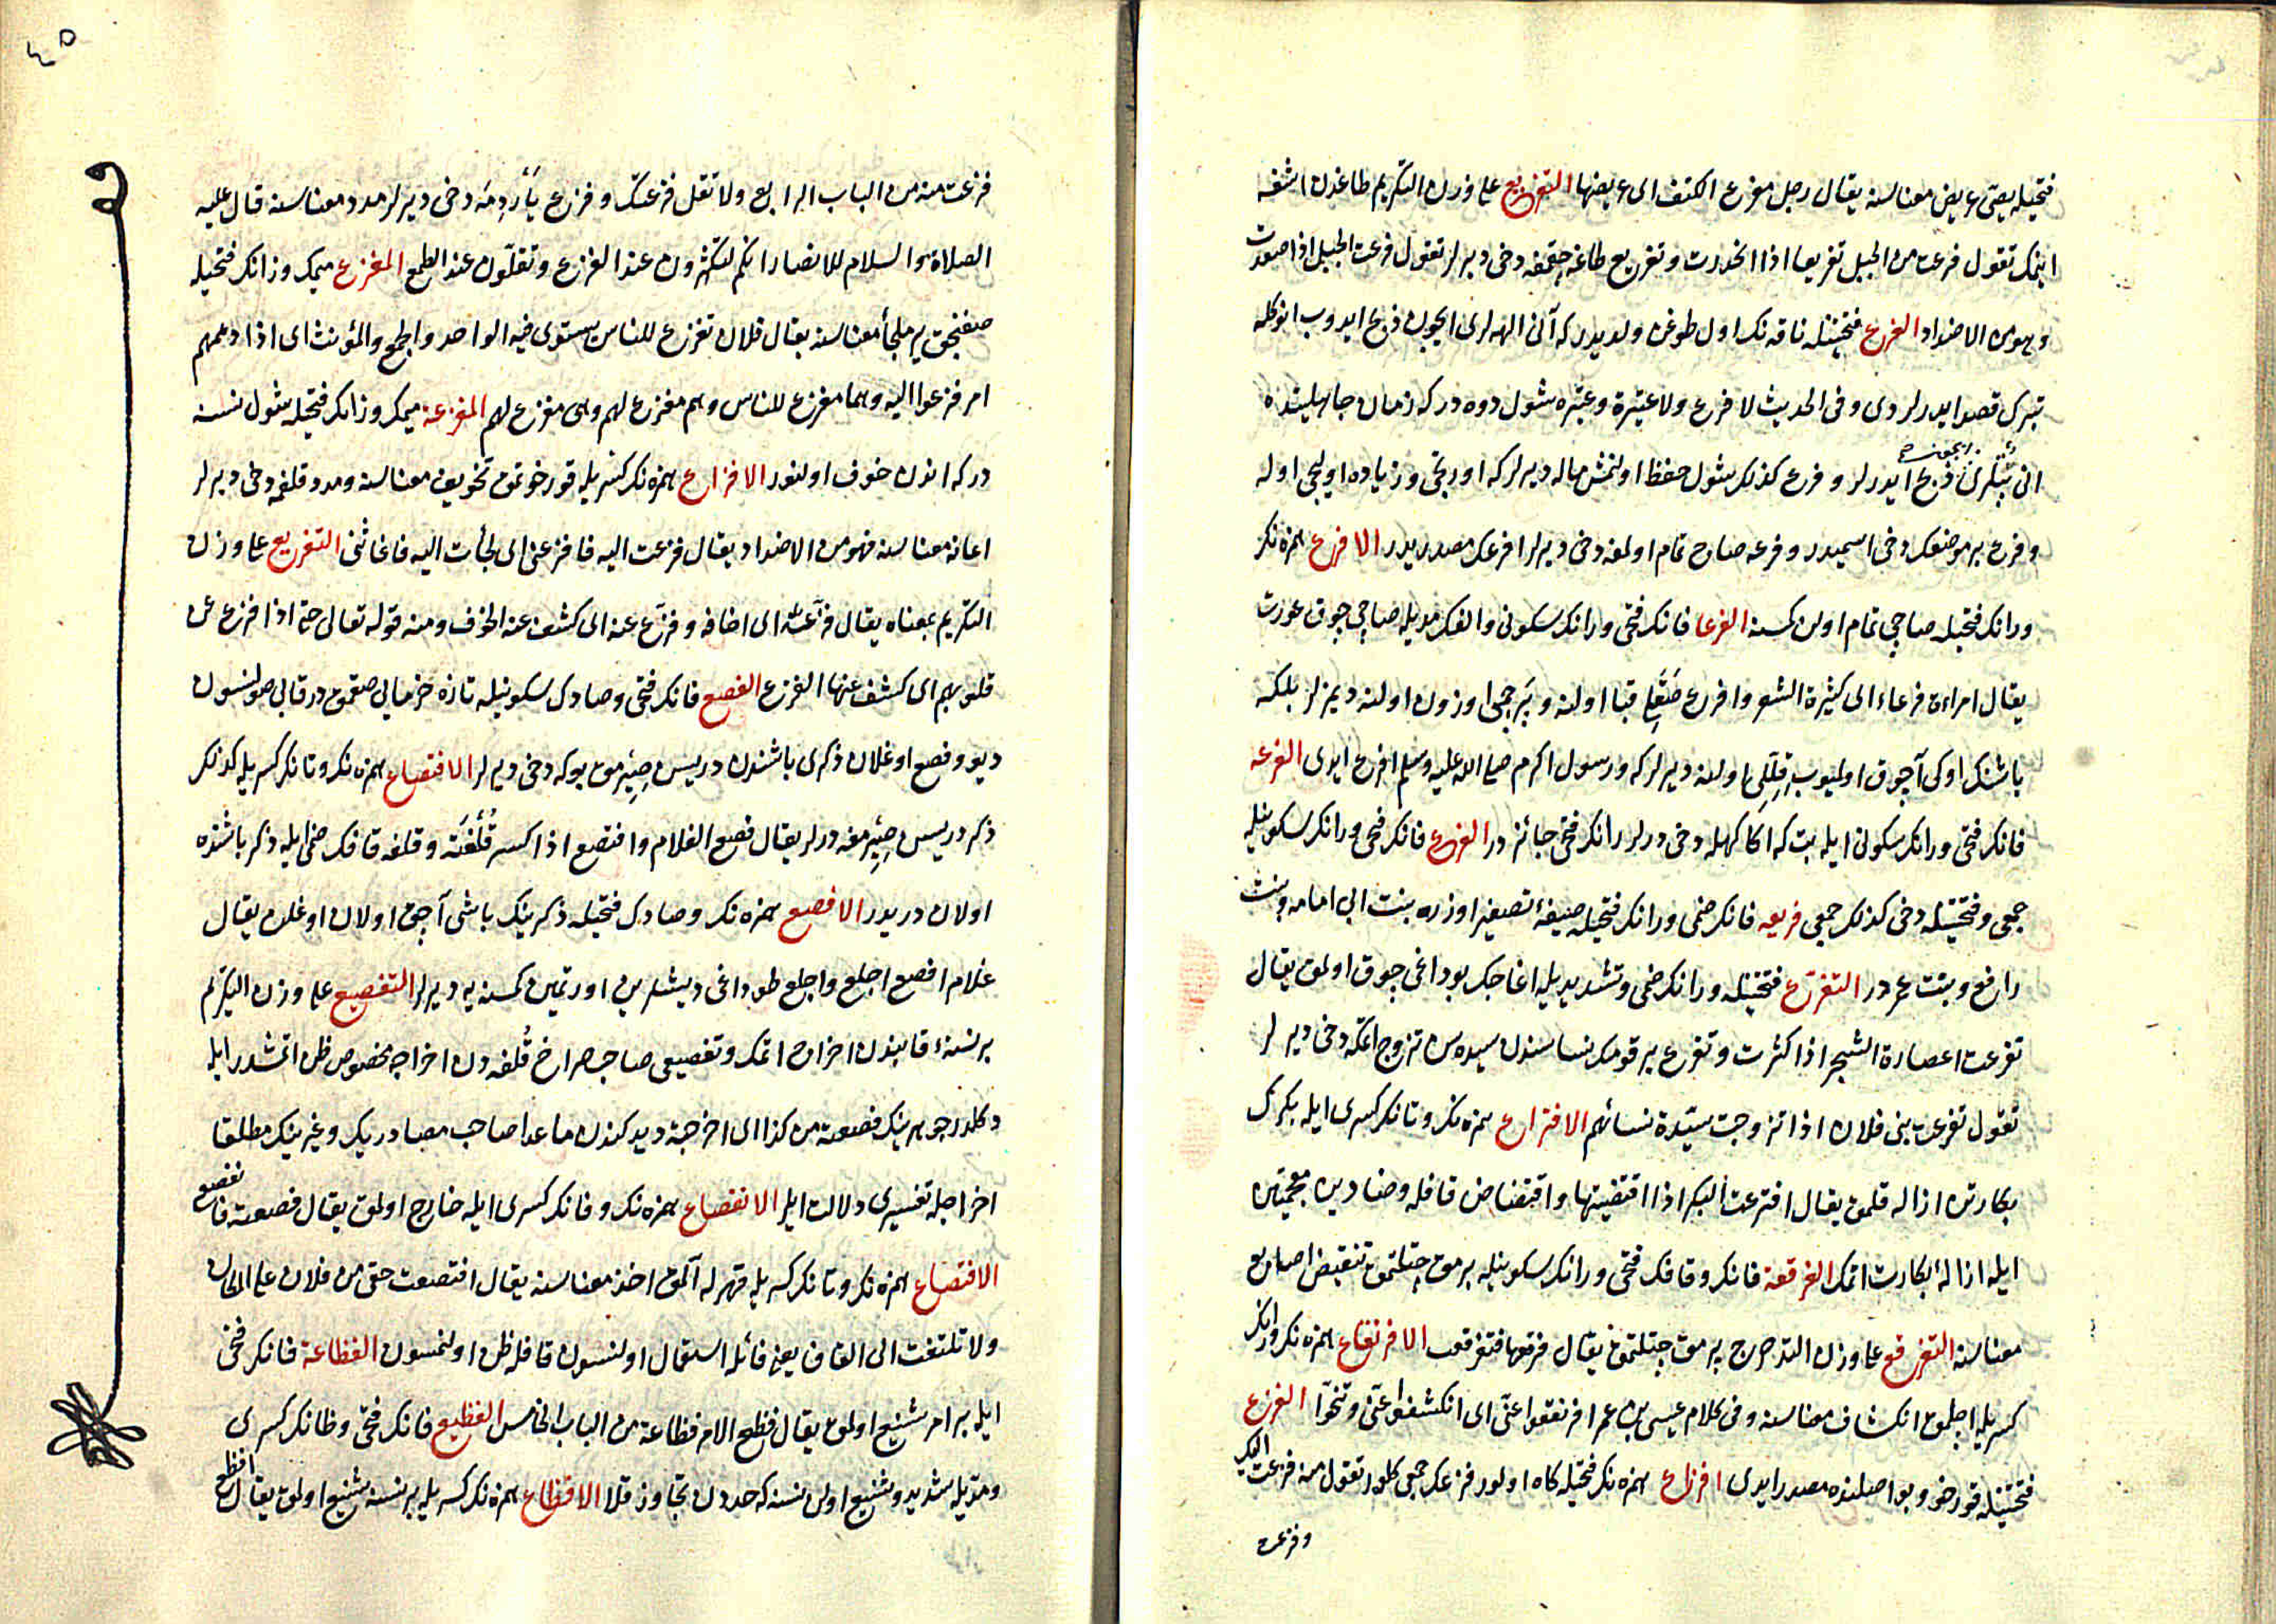 فتحيله يصى عريض معناسنه يقال رجل مفرع الكتف اى عريضها التفريع على وزن التكريم طاغدن اشغه
اينمك تقول فرعت من الجبل تفريعا اذا انحدرت وتفريع طاغه چقمغه دخى ديرلر تقول فرعت الجبل اذا صعدت
وهو من الاضداد الفرع فتحتينله ناقه نك اول طوغن ولديدر كه آنى الهه لرى ايچون ذبح ايدوب انوكله
تبرك قصد ايدرلردى وفى الحديث لا فرع ولا عتيرة وعتيره شول دوه در كه زمان جاهليتده
انى ذبح ايدرلر وفرع كذلك شول حفظ اولنمش ماله ديرلر كه اورتجى وزياده اوليجى اوله
وفرع بر موضعك دخى اسميدر وفرعه صاچ تمام اولمغه دخى ديرلر افرعك مصدريدر الافرع همزه نك
ورانك فتحيله صاچى تمام اولن كمسنه الفرعا فانك فتحى ورانك سكونى والفك مديله صاچى چوق عورت
يقال امراءة فرعاء اى كثيرة الشعر وافرع صقلى قبا اولنه وپرچمى اوزون اولنه ديمزلر بلكه
باشنك اوكى آچوق اوليوب قللى اولنه ديرلر كه ورسول اكرم صلى الله عليه وسلم افرع ايدى الفرعه
فانك فتحى ورانك سكونى ايله بت كه اكا كهله دخى ديرلر رانك فتحى جائزدر الفرع فانك فتحى ورانك سكونيله
جمعى وفتحتينله دخى كذلك جمعى فريعه فانك ضمى ورانك فتحيله صيغهٔ تصغير اوزره بنت ابى امامه وبنت
رافع وبنت عمر در التفرع فتحتينله ورانك ضمى وتشديديله اغاجك بوداغى چوق اولمق يقال
تفرعت اعصارة الشجر اذا كثرت وتفرع بر قومك نساسندن سيده سن تزوج اتمكه دخى ديرلر
تقول تفرعت بنى فلان اذا تزوجت سيدة نسائهم الافتراع همزه نك وتانك كسرى ايله بكرك
بكارتن ازاله قلمق يقال افترعت البكر اذا اقتضيتها واقتضاض قافله وضادين معجمتين
ايله ازالهٔ بكارت اتمك الفرقعة فانك وقافك فتحى ورانك سكونيله برمق چتلتمق تنقيض اصابع
معناسنه التفرقع على وزن التدحرج برمق چتلتمق يقال فرقعها فتفرقعت الافرنقاع همزه نك ورانك
كسريله اچلمق انكشاف معناسنه وفى كلام عيسى بن عمر افرنقعوا عنى اى انكشفوا عنى وتنحوا الفزع
فتحتينله قورخو وبو اصلنده مصدر ايدى افزاع همزه نك فتحيله كاه اولور فزعك جمعى كلور تقول منه فزعت اليك
وفزعت

فزعت منه من الباب الرابع ولا تقل فزعتك وفزع يأردمه دخى ديرلر مدد معناسنه قال عليه
الصلاة والسلام للانصار انكم لتكثرون عند الفزع وتقلون عند الطمع المفزع ميمك وزانك فتحيله
صغنجق ير ملجأ معناسنه يقال فلان مفزع للناس يستوى فيه الواحد والجمع والمؤنث اى اذا دهمهم
امر فزعوا اليه وهما مفزع للناس وهم مفزع لهم وهى مفزع لهم المفزعة ميمك وزانك فتحيله شول نسنه
در كه اندن خوف اولنور الافزاع همزه نك كسريله قورخوتمق تخويف معناسنه ومدد قلمغه دخى ديرلر
اعانه معناسنه فهو من الاضداد يقال فزعت اليه فافزعنى اى لجأت اليه فاغاثنى التفزيع على وزن
التكريم بمعناه يقال فزعته اى اخافه وفزع عنه اى كشف عنه الخوف ومنه قوله تعالى حتى اذا فزع عن
قلوبهم اى كشف عنها الفزع الفصع فانك فتحى وصادك سكونيله تازه خرمايى صقمقدر قابى صولنسون
ديو وفصع اوغلان ذكرى باشندن دريسن صيرمق بوكه دخى ديرلر الافتصاع همزه نك وتانك كسريله كذلك
ذكر دريسن صيرمغه ديرلر يقال فصع الغلام وافتصع اذا كسر قلفته وقلفه قافك ضمى ايله ذكر باشنده
اولان دريدر الافصع همزه نك وصادك فتحيله ذكرينك باشى آچق اولان اوغلان يقال
غلام افصع اجلع واجلع طوداغى ديشلرين اورتمين كمسنه يه ديرلر التفصيع على وزن التكريم
بر نسنهٔ قابندن اخراج اتمك وتفصيعى صاحب صراح قلفه دن اخراجه مخصوص ظن اتمشدر ايله
دكلدر جوهرينك فصعته من كذا اى اخرجته ديدكندن ماعدا صاحب مصادرينك وغيرينك مطلقا
اخراجله تفسيرى دلالت ايلر الانفصاع همزه نك وفانك كسرى ايله خارج اولمق يقال فصعته فانفصع
الافتصاع همزه نك وتانك كسريله قهرله آلمق اخذ معناسنه يقال افتصعت حقى من فلان على المكان
ولا تلتفت الى القاف يعنى فائله استعمال اولنسون قافله ظن اولنمسون الفظاعة فانك فتحى
ايله بر امر شنيع اولمق يقال فظع الامر فظاعة من الباب الخامس الفظيع فانك فتحى وظانك كسرى
ومديله شديد وشنيع اولن نسنه كه حددن تجاوز قلا الافظاع همزه نك كسريله بر نسنه شنيع اولمق يقال افظع